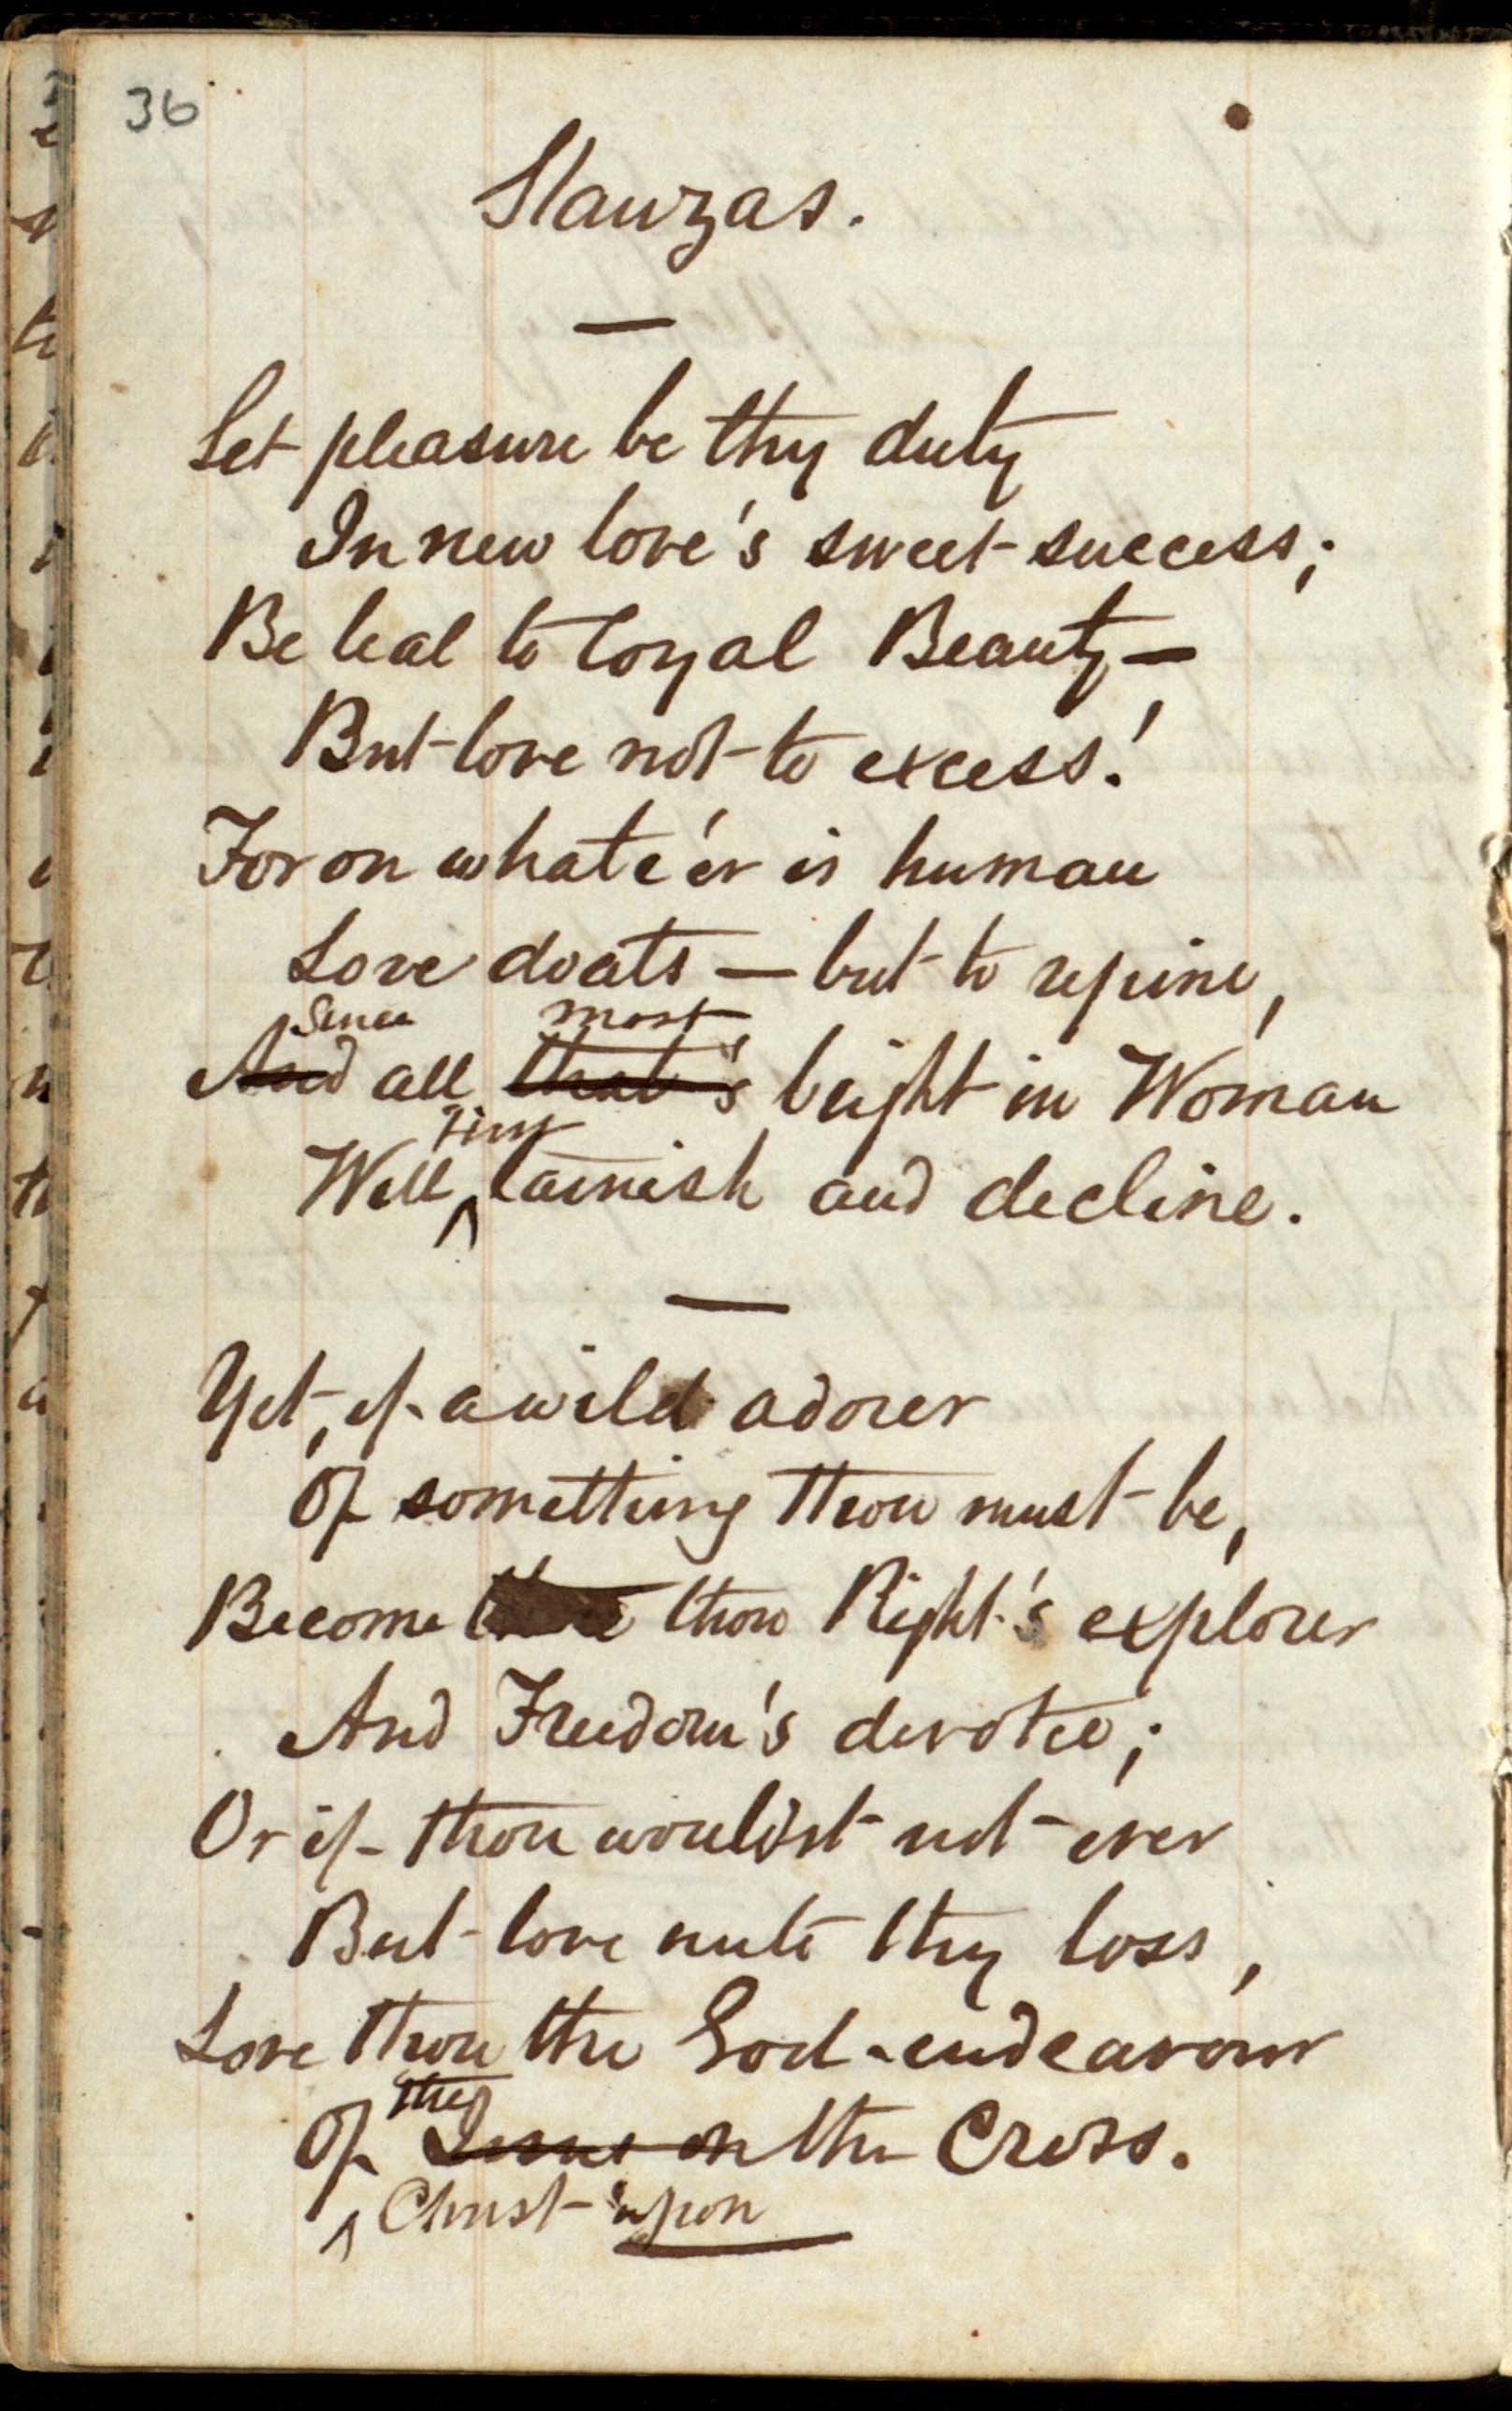 36
Stanzas.
Let pleasure be thy duty
In new love's sweet success;
Be leal to loyal Beauty—
But love not to excess!
For on whate'er is human
Love doats — but to repine,
Since most
And all that's bright in Woman
first
Will tarnish and decline.
Yet, if a wild adorer
Of something thou must be,
Become thou Right's explorer
And Freedom's devotee;
Or if thou wouldst not ever
But love unto thy loss,
Love thou the God-endeavour
the
Of Jesus on the Cross.
Christ upon